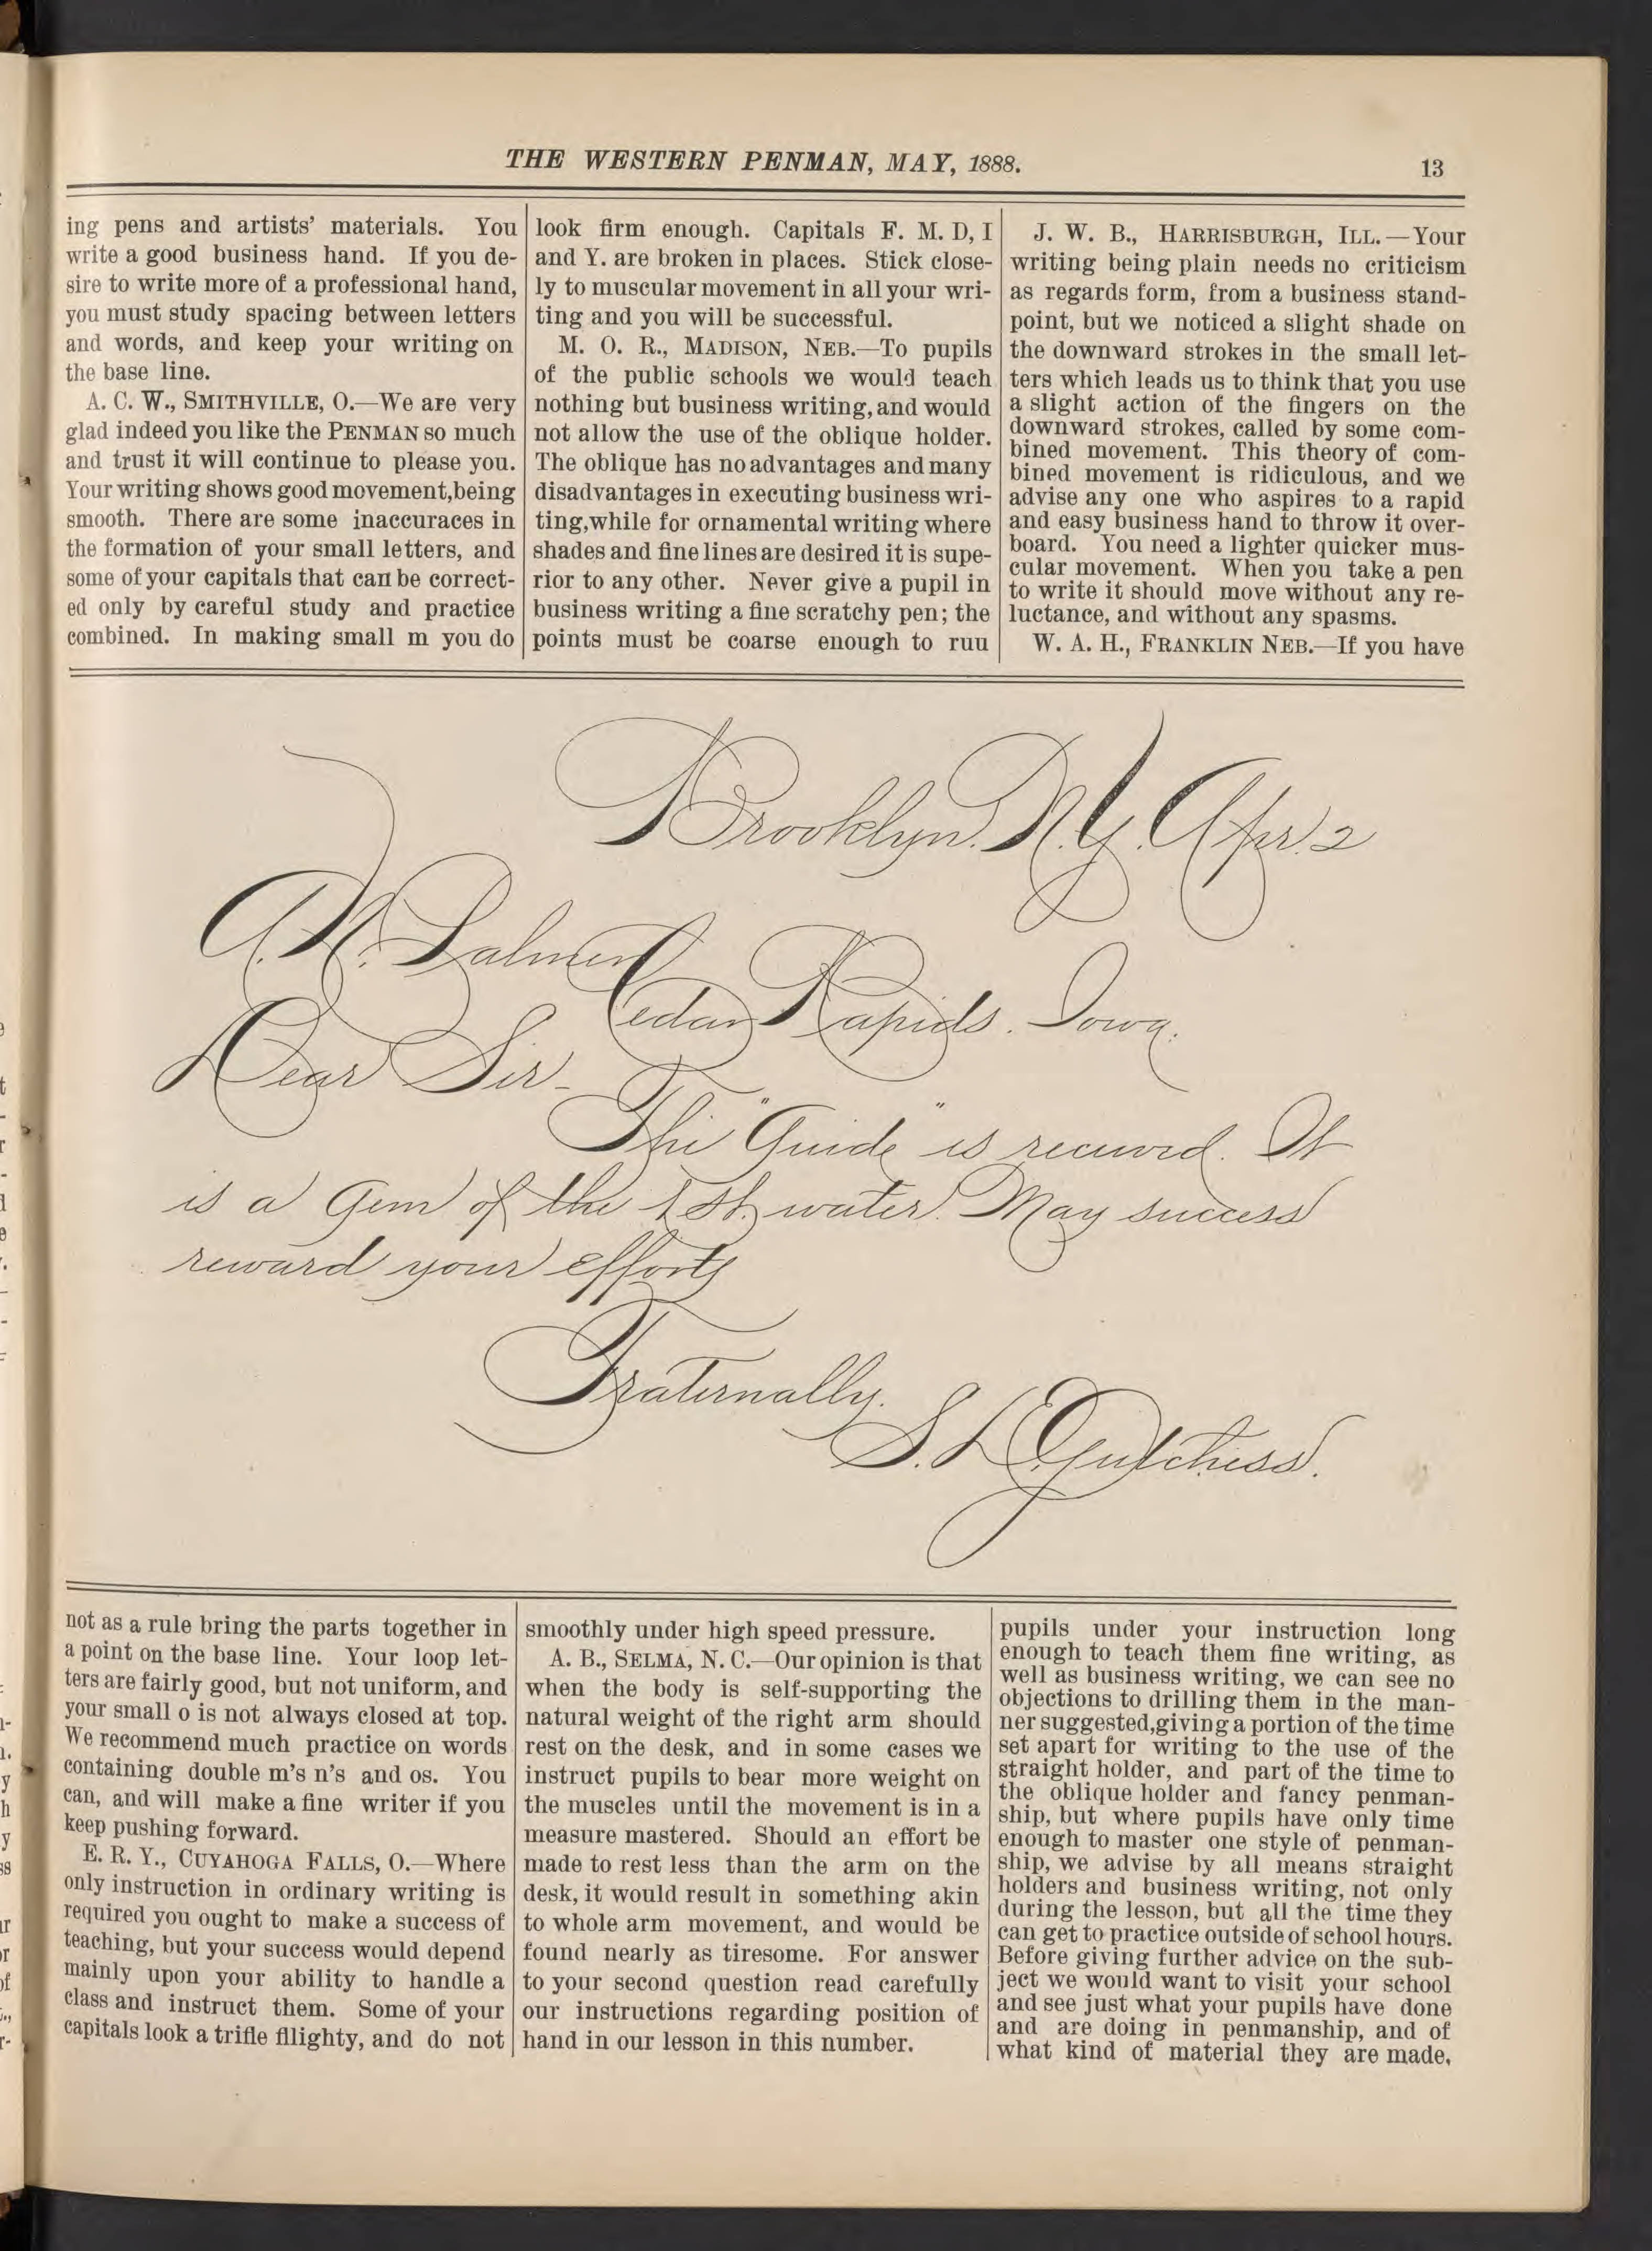 THE WESTERN PENMAN, MAY, 1888.
13
ing pens and artists' materials. You
write a good business hand. If you de-
sire to write more of a professional hand,
you must study spacing between letters
and words, and keep your writing on
the base line.
A. C. W., SMITHVILLE, O.—We are very
glad indeed you like the PENMAN so much
and trust it will continue to please you.
Your writing shows good movement,being
smooth. There are some inaccuraces in
the formation of your small letters, and
some of your capitals that can be correct-
ed only by careful study and practice
combined. In making small m you do
look firm enough. Capitals F. M. D, I
and Y. are broken in places. Stick close-
ly to muscular movement in all your wri-
ting and you will be successful.
M. O. R., MADISON, NEB.—To pupils
of the public schools we would teach
nothing but business writing, and would
not allow the use of the oblique holder.
The oblique has no advantages and many
disadvantages in executing business wri-
ting,while for ornamental writing where
shades and fine lines are desired it is supe-
rior to any other. Never give a pupil in
business writing a fine scratchy pen; the
points must be coarse enough to ruu
J. W. B., HARRISBURGH, ILL.—Your
writing being plain needs no criticism
as regards form, from a business stand-
point, but we noticed a slight shade on
the downward strokes in the small let-
ters which leads us to think that you use
a slight action of the fingers on the
downward strokes, called by some com-
bined movement. This theory of com-
bined movement is ridiculous, and we
advise any one who aspires to a rapid
and easy business hand to throw it over-
board. You need a lighter quicker mus-
cular movement. When you take a pen
to write it should move without any re-
luctance, and without any spasms.
W. A. H., FRANKLIN NEB.—If you have
Brooklyn. N.Y. Apr. 2
A. N. Palmer
Cedar Rapids. Iowa.
Dear Sir-
The "Guide" is received. It
is a Gem of the 1st. water. May success
reward your efforts
Fraternally.
S. L.
not as a rule bring the parts together in
a point on the base line. Your loop let-
ters are fairly good, but not uniform, and
your small o is not always closed at top.
We recommend much practice on words
containing double m's n's and os. You
can, and will make a fine writer if you
keep pushing forward.
E. R. Y., CUYAHOGA FALLS, O.—Where
only instruction in ordinary writing is
required you ought to make a success of
teaching, but your success would depend
mainly upon your ability to handle a
class and instruct them. Some of your
capitals look a trifle flighty, and do not
smoothly under high speed pressure.
A. B., SELMA, N. C.—Our opinion is that
when the body is self-supporting the
natural weight of the right arm should
rest on the desk, and in some cases we
instruct pupils to bear more weight on
the muscles until the movement is in a
measure mastered. Should an effort be
made to rest less than the arm on the
desk, it would result in something akin
to whole arm movement, and would be
found nearly as tiresome. For answer
to your second question read carefully
our instructions regarding position of
hand in our lesson in this number.
pupils under your instruction long
enough to teach them fine writing, as
well as business writing, we can see no
objections to drilling them in the man-
ner suggested,giving a portion of the time
set apart for writing to the use of the
straight holder, and part of the time to
the oblique holder and fancy penman-
ship, but where pupils have only time
enough to master one style of penman-
ship, we advise by all means straight
holders and business writing, not only
during the lesson, but all the time they
can get to practice outside of school hours.
Before giving further advice on the sub-
ject we would want to visit your school
and see just what your pupils have done
and are doing in penmanship, and of
what kind of material they are made,